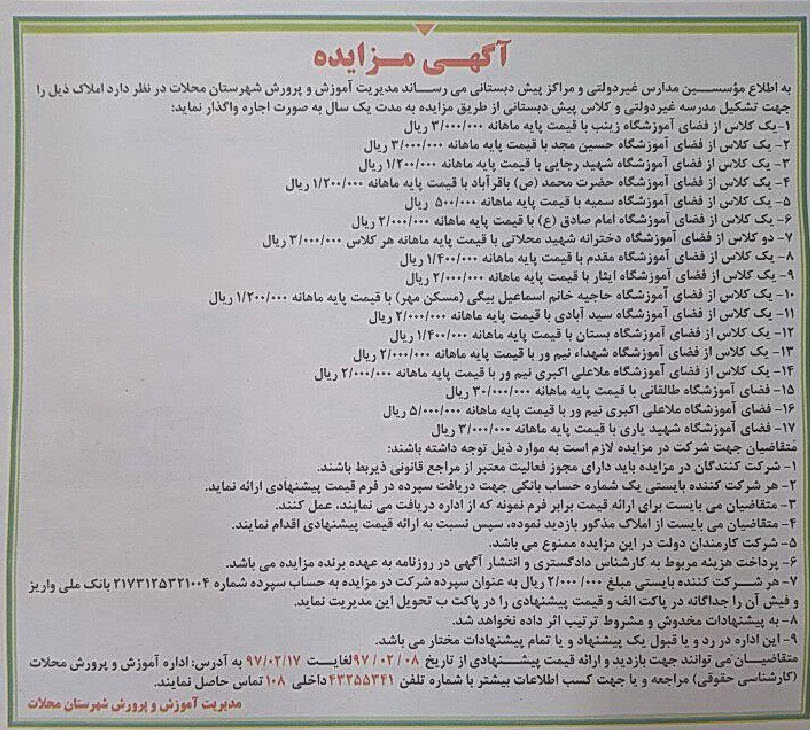 آگهی مزایده
به اطلاع مؤسسین مدارس غیردولتی و مراکز پیش دبستانی می رساند مدیریت آموزش و پرورش شهرستان محلات در نظر دارد املاک ذیل را
جهت تشکیل مدرسه غیردولتی و کلاس پیش دبستانی از طریق مزایده به مدت یک سال به صورت اجاره واگذار نماید:
۱-یک کلاس از فضای آموزشگاه زینب با قیمت پایه ماهانه ۳/۰۰۰/۰۰۰ ریال
۲- یک کلاس از فضای آموزشگاه حسین مجد با قیمت پایه ماهانه ۳/۰۰۰/۰۰۰ ریال
۳- یک کلاس از فضای آموزشگاه شهید رجایی با قیمت پایه ماهانه ۱/۲۰۰/۰۰۰ ریال
۴- یک کلاس از فضای آموزشگاه حضرت محمد (ص) باقرآباد با قیمت پایه ماهانه ۱/۲۰۰/۰۰۰ ریال
۵- یک کلاس از فضای آموزشگاه سمیه با قیمت پایه ماهانه ۵۰۰/۰۰۰ ریال
۶- یک کلاس از فضای آموزشگاه امام صادق (ع) با قیمت پایه ماهانه ۲/۰۰۰/۰۰۰ ریال
۷- دو کلاس از فضای آموزشگاه دخترانه شهید محلاتی با قیمت پایه ماهانه هر کلاس ۳/۰۰۰/۰۰۰ ریال
۸- یک کلاس از فضای آموزشگاه مقدم با قیمت پایه ماهانه ۱/۴۰۰/۰۰۰ ریال
۹- یک کلاس از فضای آموزشگاه ایثار با قیمت پایه ماهانه ۲/۰۰۰/۰۰۰ ریال
۱۰- یک کلاس از فضای آموزشگاه حاجیه خانم اسماعیل بیگی (مسکن مهر) با قیمت پایه ماهانه ۱/۲۰۰/۰۰۰ ریال
۱۱- یک کلاس از فضای آموزشگاه سید آبادی با قیمت پایه ماهانه ۲/۰۰۰/۰۰۰ ریال
۱۲- یک کلاس از فضای آموزشگاه بستان با قیمت پایه ماهانه ۱/۴۰۰/۰۰۰ ریال
۱۳- یک کلاس از فضای آموزشگاه شهداء نیم ور با قیمت پایه ماهانه ۲/۰۰۰/۰۰۰ ریال
۱۴- یک کلاس از فضای آموزشگاه ملاعلی اکبری نیم ور با قیمت پایه ماهانه ۲/۰۰۰/۰۰۰ ریال
۱۵- فضای آموزشگاه طالقانی با قیمت پایه ماهانه ۳۰/۰۰۰/۰۰۰ ریال
۱۶- فضای آموزشگاه ملاعلی اکبری نیم ور با قیمت پایه ماهانه ۵/۰۰۰/۰۰۰ ریال
۱۷- فضای آموزشگاه شهید یاری با قیمت پایه ماهانه ۳/۰۰۰/۰۰۰ ریال
متقاضیان جهت شرکت در مزایده لازم است به موارد ذیل توجه داشته باشند:
۱- شرکت کنندگان در مزایده باید دارای مجوز فعالیت معتبر از مراجع قانونی ذیربط باشند.
۲- هر شرکت کننده بایستی یک شماره حساب بانکی جهت دریافت سپرده در فرم قیمت پیشنهادی ارائه نماید.
۳- متقاضیان می بایست برای ارائه قیمت برابر فرم نمونه که از اداره دریافت می نمایند، عمل کنند.
۴- متقاضیان می بایست از املاک مذکور بازدید نموده، سپس نسبت به ارائه قیمت پیشنهادی اقدام نمایند.
۵- شرکت کارمندان دولت در این مزایده ممنوع می باشد.
۶- پرداخت هزینه مربوط به کارشناس دادگستری و انتشار آگهی در روزنامه به عهده برنده مزایده می باشد.
۷- هر شرکت کننده بایستی مبلغ ۲/۰۰۰/۰۰۰ ریال به عنوان سپرده شرکت در مزایده به حساب سپرده شماره ۲۱۷۳۱۲۵۳۲۱۰۰۴ بانک ملی واریز
و فیش آن را جداگانه در پاکت الف و قیمت پیشنهادی را در پاکت ب تحویل این مدیریت نماید.
۸- به پیشنهادات مخدوش و مشروط ترتیب اثر داده نخواهد شد.
۹- این اداره در رد و یا قبول یک پیشنهاد و یا تمام پیشنهادات مختار می باشد.
متقاضیان می توانند جهت بازدید و ارائه قیمت پیشنهادی از تاریخ ۹۷/۰۲/۰۸ لغایت ۹۷/۰۲/۱۷ به آدرس: اداره آموزش و پرورش محلات
(کارشناسی حقوقی) مراجعه و یا جهت کسب اطلاعات بیشتر با شماره تلفن ۴۳۲۵۵۳۴۱ داخلی ۱۰۸ تماس حاصل نمایند.
مدیریت آموزش و پرورش شهرستان محلات